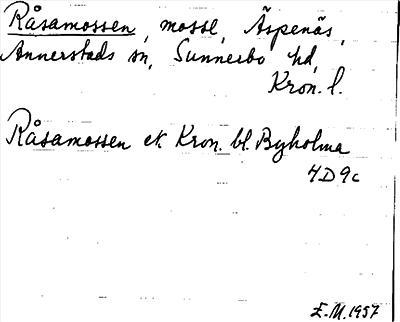 Råsamossen, mosse, Äspenäs,
Annerstads sn, Sunnerbo hd,
Kron. l.
Råsamossen ek. Kron. bl. Byholma
4D 9c
E.M. 1957